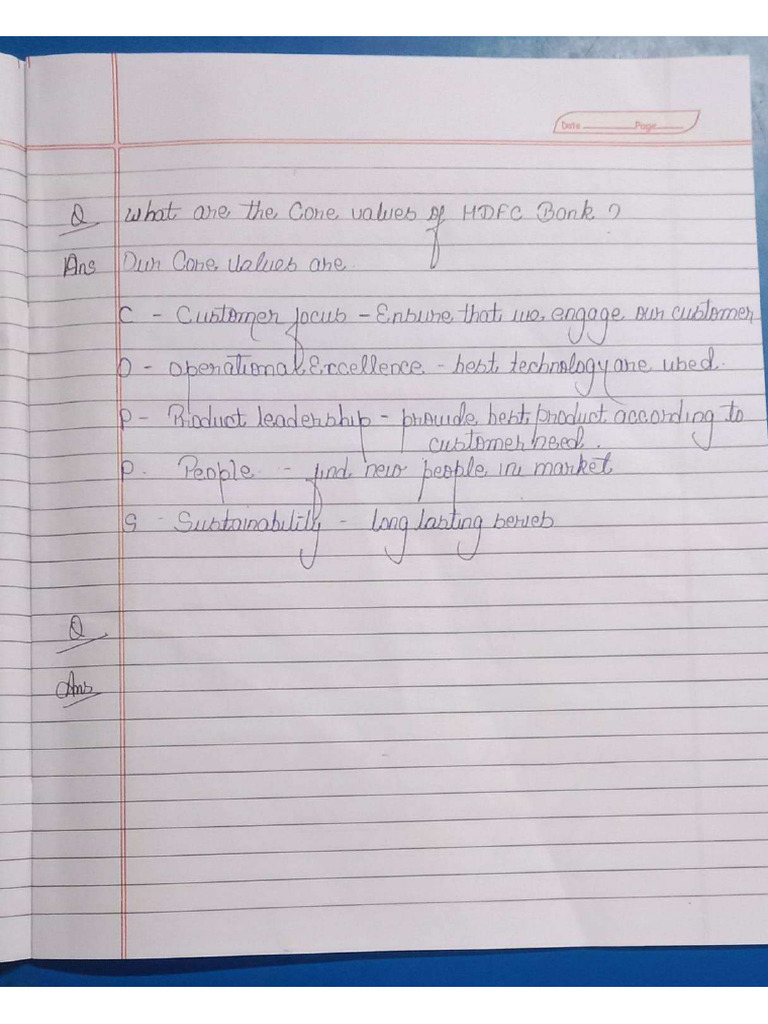 Date Page
Q What are the Core values of HDFC Bank ?
Ans Our Core values are.
C - Customer focus - Ensure that we engage our customer
O - Operational Excellence - best technology are used.
P - Product leadership - provide best product according to
customer need.
P. People - find new people in market
S - Sustainability - long lasting servies
Q
Ans